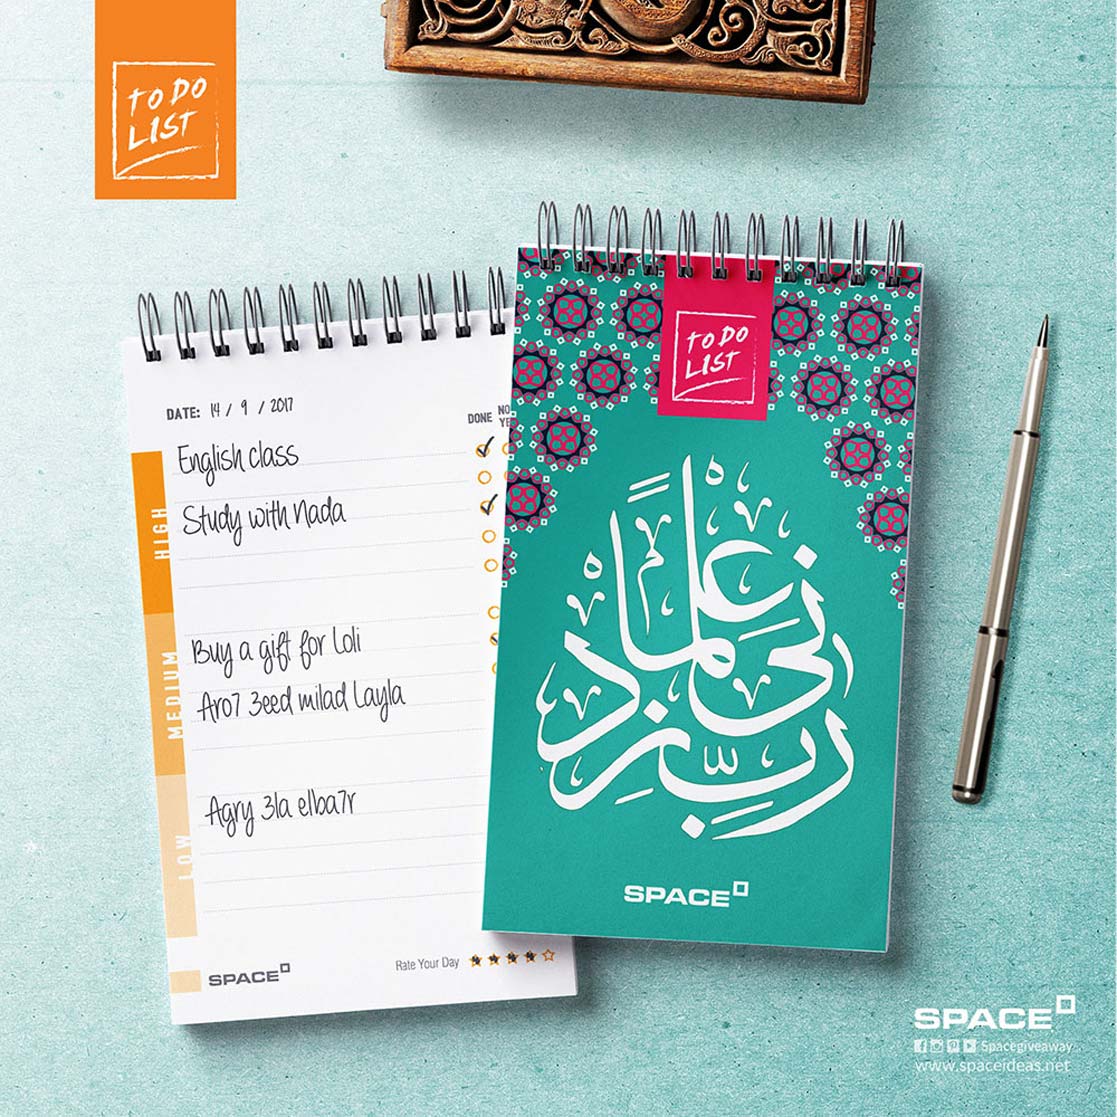 TO DO
LIST
DATE: 14 / 9 / 2017
DONE NO
YE
English class
Study with Nada
HIGH
Buy a gift for Loli
Aro7 3eed milad Layla
MEDIUM
Agry 3la elba7r
LOW
Rate Your Day
SPACE
TO DO
LIST
رَبِّ زِدْنِي عِلْمًا
SPACE
SPACE
Spacegiveaway
www.spaceideas.net